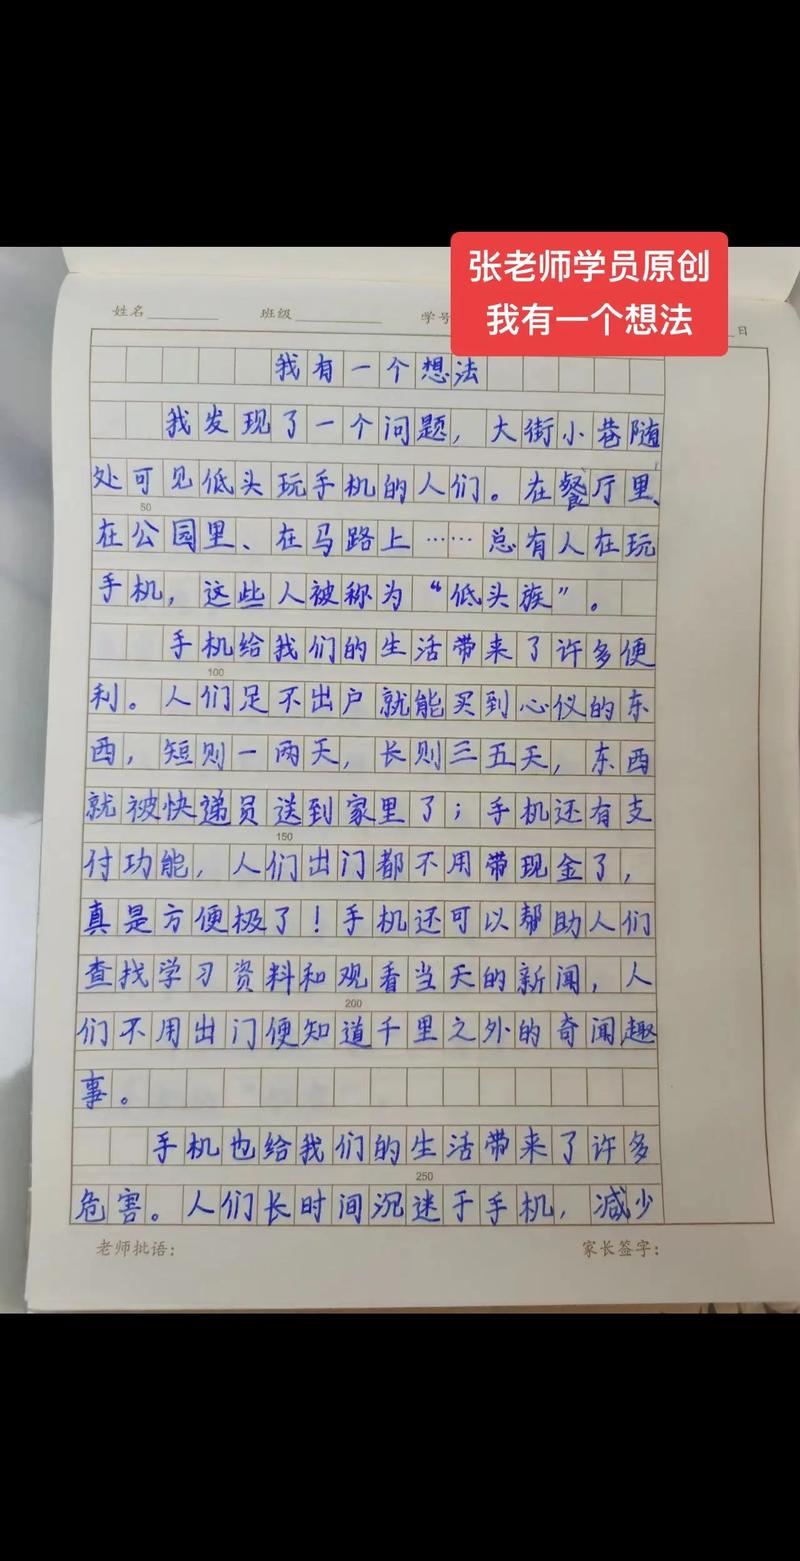 张老师学员原创
我有一个想法
姓名 班级 学号 日
我有一个想法
我发现了一个问题，大街小巷随
处可见低头玩手机的人们。在餐厅里、
50
在公园里、在马路上……总有人在玩
手机，这些人被称为“低头族”。
手机给我们的生活带来了许多便
100
利。人们足不出户就能买到心仪的东
西，短则一两天，长则三五天，东西
就被快递员送到家里了；手机还有支
150
付功能，人们出门都不用带现金了，
真是方便极了！手机还可以帮助人们
查找学习资料和观看当天的新闻，人
200
们不用出门便知道千里之外的奇闻趣
事。
手机也给我们的生活带来了许多
250
危害。人们长时间沉迷于手机，减少
老师批语： 家长签字：